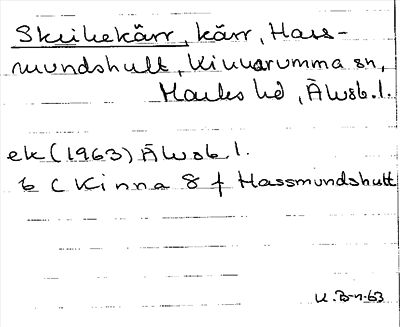 Skihekärr, kärr, Hass-
mundshult, Kinnarumma sn,
Marks hd, Älvsb. l.
ek (1963) Älvsb l.
6 C Kinna 8 f Hassmundshult